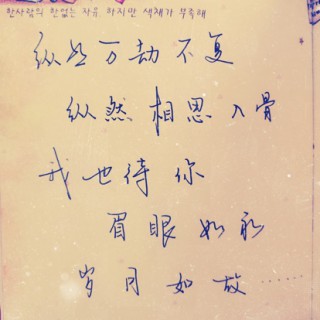 한사람의 한없는 자유, 하지만 색채가 부족해
纵 万劫不复
纵然相思入骨
我也待你
眉眼如初
岁月如故……